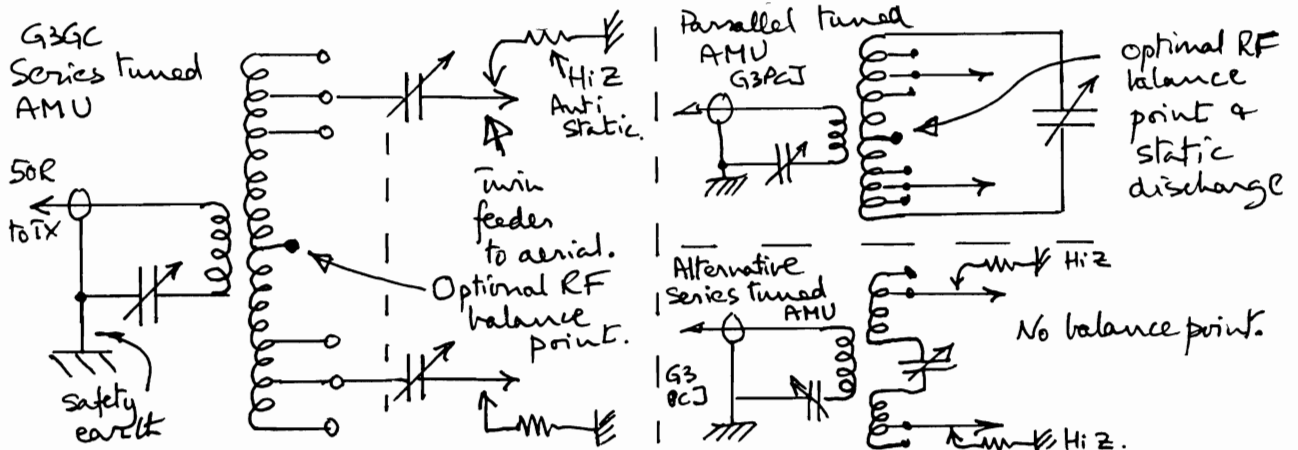 G3GC
Series tuned
AMU
50R
to TX
safety
earth
Hi Z
Anti
static.
Twin
feeder
to aerial.
Optional RF
balance
point.
Parrallel tuned
AMU
G3PCJ
Optimal RF
balance
point &
static
discharge
Alternative
Series tuned
AMU
G3
PCJ
Hi Z
No balance point.
Hi Z.